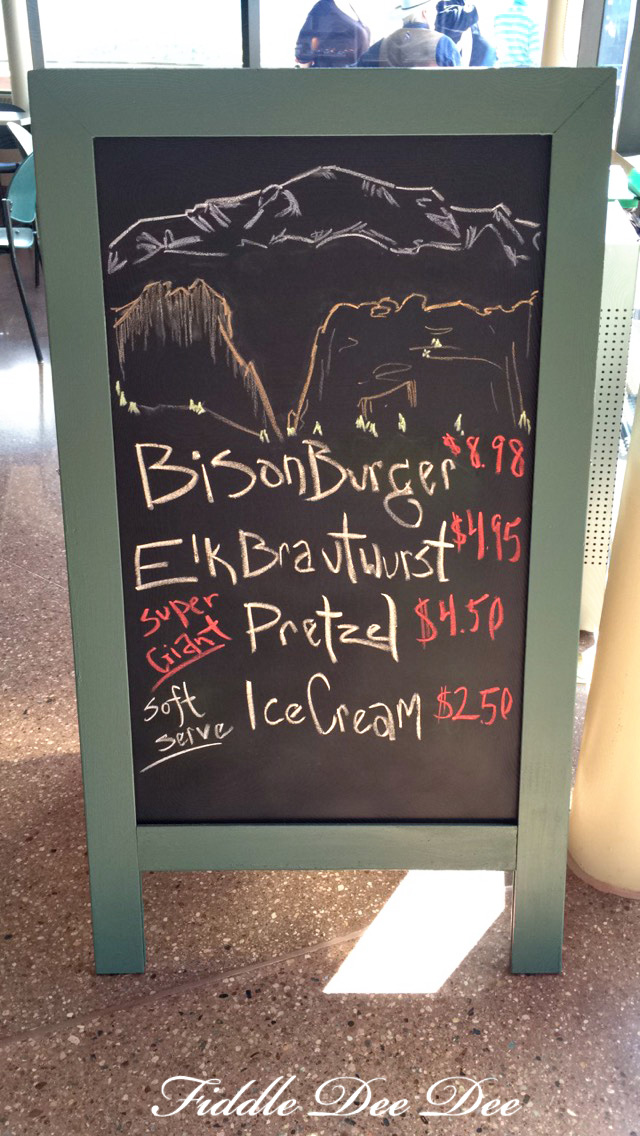 Bison Burger $8.98
Elk Brautwurst $4.95
Super Giant Pretzel $4.50
soft serve Ice Cream $2.50
Fiddle Dee Dee